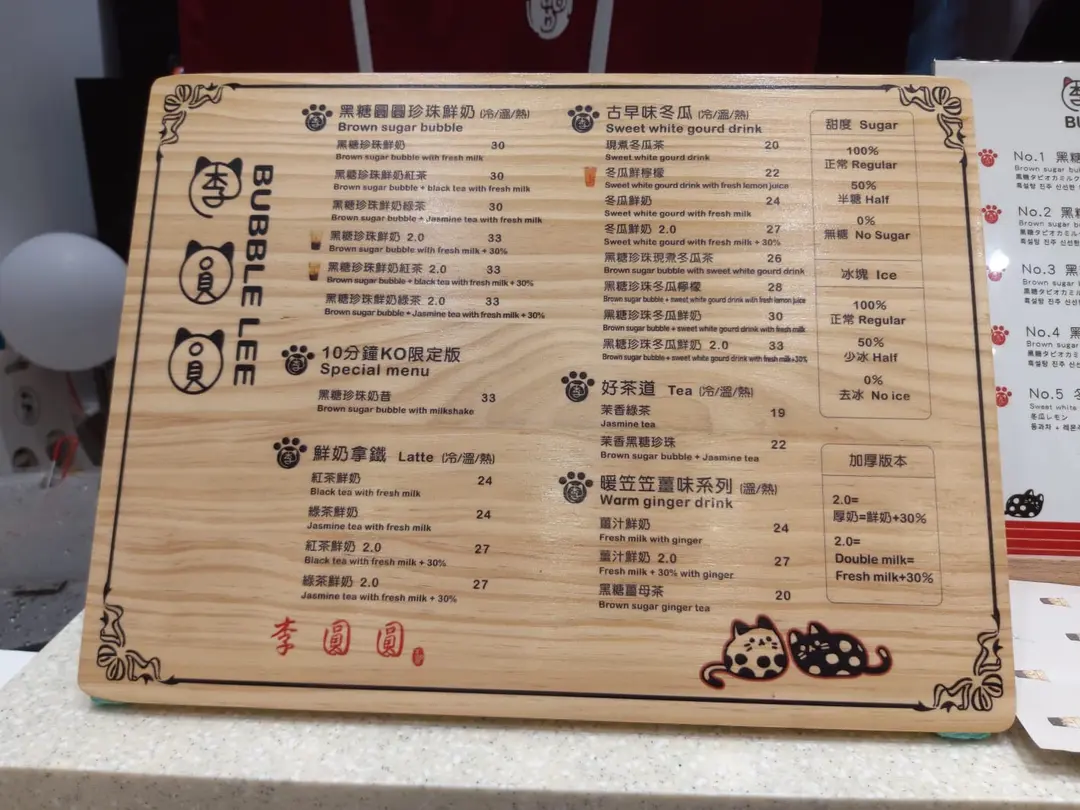 李
員
員
BUBBLE LEE
黑糖圓圓珍珠鮮奶 (冷/溫/熱)
Brown sugar bubble
黑糖珍珠鮮奶 30
Brown sugar bubble with fresh milk
黑糖珍珠鮮奶紅茶 30
Brown sugar bubble + black tea with fresh milk
黑糖珍珠鮮奶綠茶 30
Brown sugar bubble + Jasmine tea with fresh milk
黑糖珍珠鮮奶 2.0 33
Brown sugar bubble with fresh milk + 30%
黑糖珍珠鮮奶紅茶 2.0 33
Brown sugar bubble + black tea with fresh milk + 30%
黑糖珍珠鮮奶綠茶 2.0 33
Brown sugar bubble + Jasmine tea with fresh milk + 30%
10分鐘KO限定版
Special menu
黑糖珍珠奶昔 33
Brown sugar bubble with milkshake
鮮奶拿鐵 Latte (冷/溫/熱)
紅茶鮮奶 24
Black tea with fresh milk
綠茶鮮奶 24
Jasmine tea with fresh milk
紅茶鮮奶 2.0 27
Black tea with fresh milk + 30%
綠茶鮮奶 2.0 27
Jasmine tea with fresh milk + 30%
李圓圓
古早味冬瓜 (冷/溫/熱)
Sweet white gourd drink
現煮冬瓜茶 20
Sweet white gourd drink
冬瓜鮮檸檬 22
Sweet white gourd drink with fresh lemon juice
冬瓜鮮奶 24
Sweet white gourd with fresh milk
冬瓜鮮奶 2.0 27
Sweet white gourd with fresh milk + 30%
黑糖珍珠現煮冬瓜茶 26
Brown sugar bubble with sweet white gourd drink
黑糖珍珠冬瓜檸檬 28
Brown sugar bubble + sweet white gourd drink with fresh lemon juice
黑糖珍珠冬瓜鮮奶 30
Brown sugar bubble + sweet white gourd drink with fresh milk
黑糖珍珠冬瓜鮮奶 2.0 33
Brown sugar bubble + sweet white gourd drink with fresh milk+30%
好茶道 Tea (冷/溫/熱)
茉香綠茶 19
Jasmine tea
茉香黑糖珍珠 22
Brown sugar bubble + Jasmine tea
暖笠笠薑味系列 (溫/熱)
Warm ginger drink
薑汁鮮奶 24
Fresh milk with ginger
薑汁鮮奶 2.0 27
Fresh milk + 30% with ginger
黑糖薑母茶 20
Brown sugar ginger tea
甜度 Sugar
100%
正常 Regular
50%
半糖 Half
0%
無糖 No Sugar
冰塊 Ice
100%
正常 Regular
50%
少冰 Half
0%
去冰 No ice
加厚版本
2.0=
厚奶=鮮奶+30%
2.0=
Double milk=
Fresh milk+30%
No.1 黑糖
Brown sugar
黒糖タピオカミルク
흑설탕 진주 신선한
No.2 黑糖
Brown sugar
黒糖タピオカミ
흑설탕 진주 신선한
No.3 黑糖
Brown sugar
黒糖タピオカミル
흑설탕 진주 신선
No.4 黑
Brown sugar
黒糖タピオカミ
흑설탕 진주 신
No.5 冬
Sweet white
冬瓜レモン
동과차 + 레몬